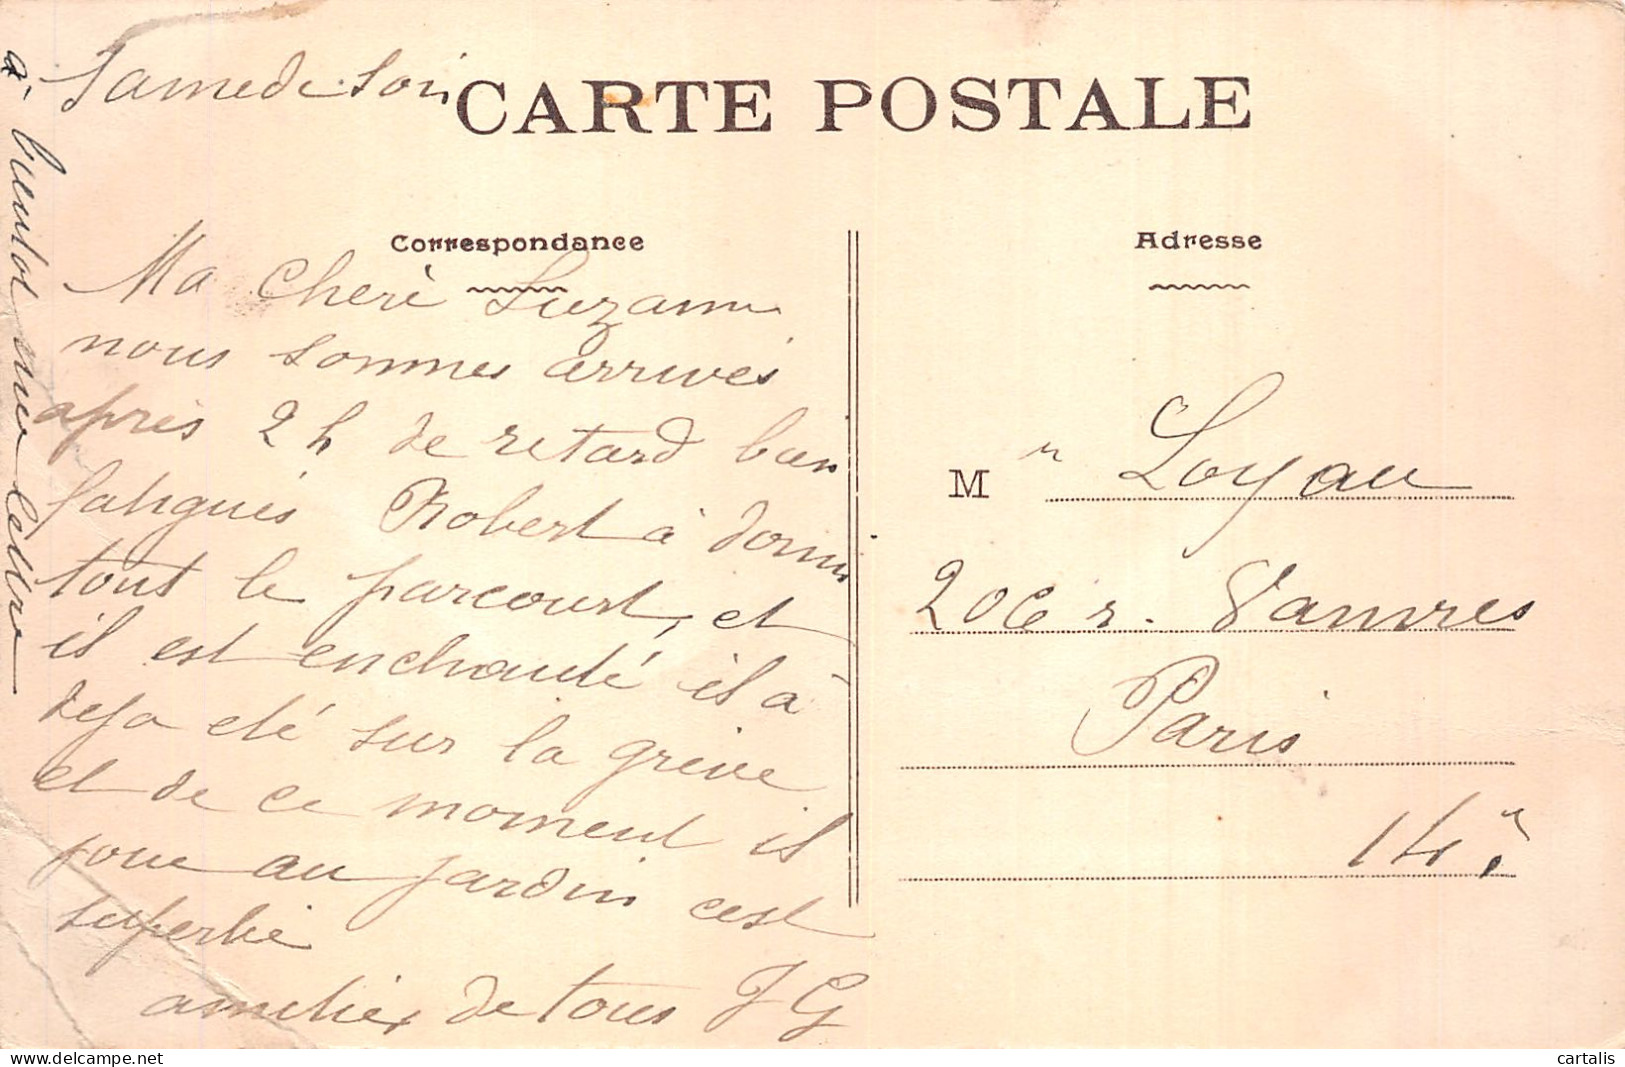 Samedi soir
CARTE POSTALE
Correspondance
Adresse
Ma Cheré Suzanne
nous sommes arrivés
après 2 h de retard bien
fatigués Robert à dormi
tout le parcourt, et
il est enchanté il à
deja eté sur la grève
et de ce moment il
joue au jardin cest
superbe
amitiés de tous JG
à bientot une lettre
M r Loyau
206 r. Vanves
Paris
14 e
cartalis